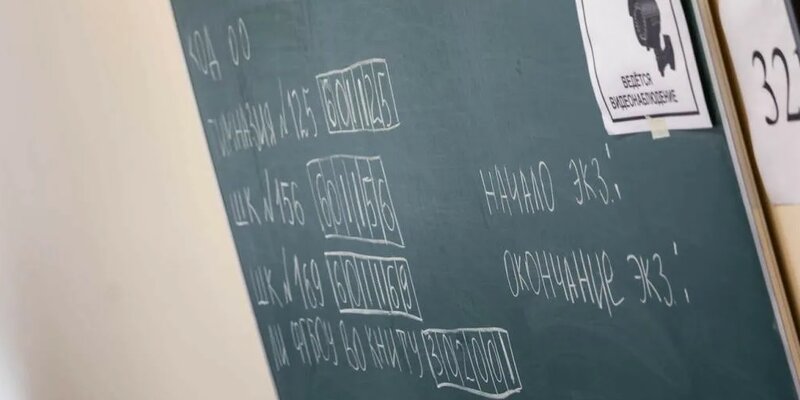 КОД ОО
ГИМНАЗИЯ №125 601125
ШК №156 601156
ШК №169 601169
ЛИ ФГБОУ ВО КНИТУ 302001
НАЧАЛО ЭКЗ.:
ОКОНЧАНИЕ ЭКЗ.:
ВЕДЁТСЯ
ВИДЕОНАБЛЮДЕНИЕ